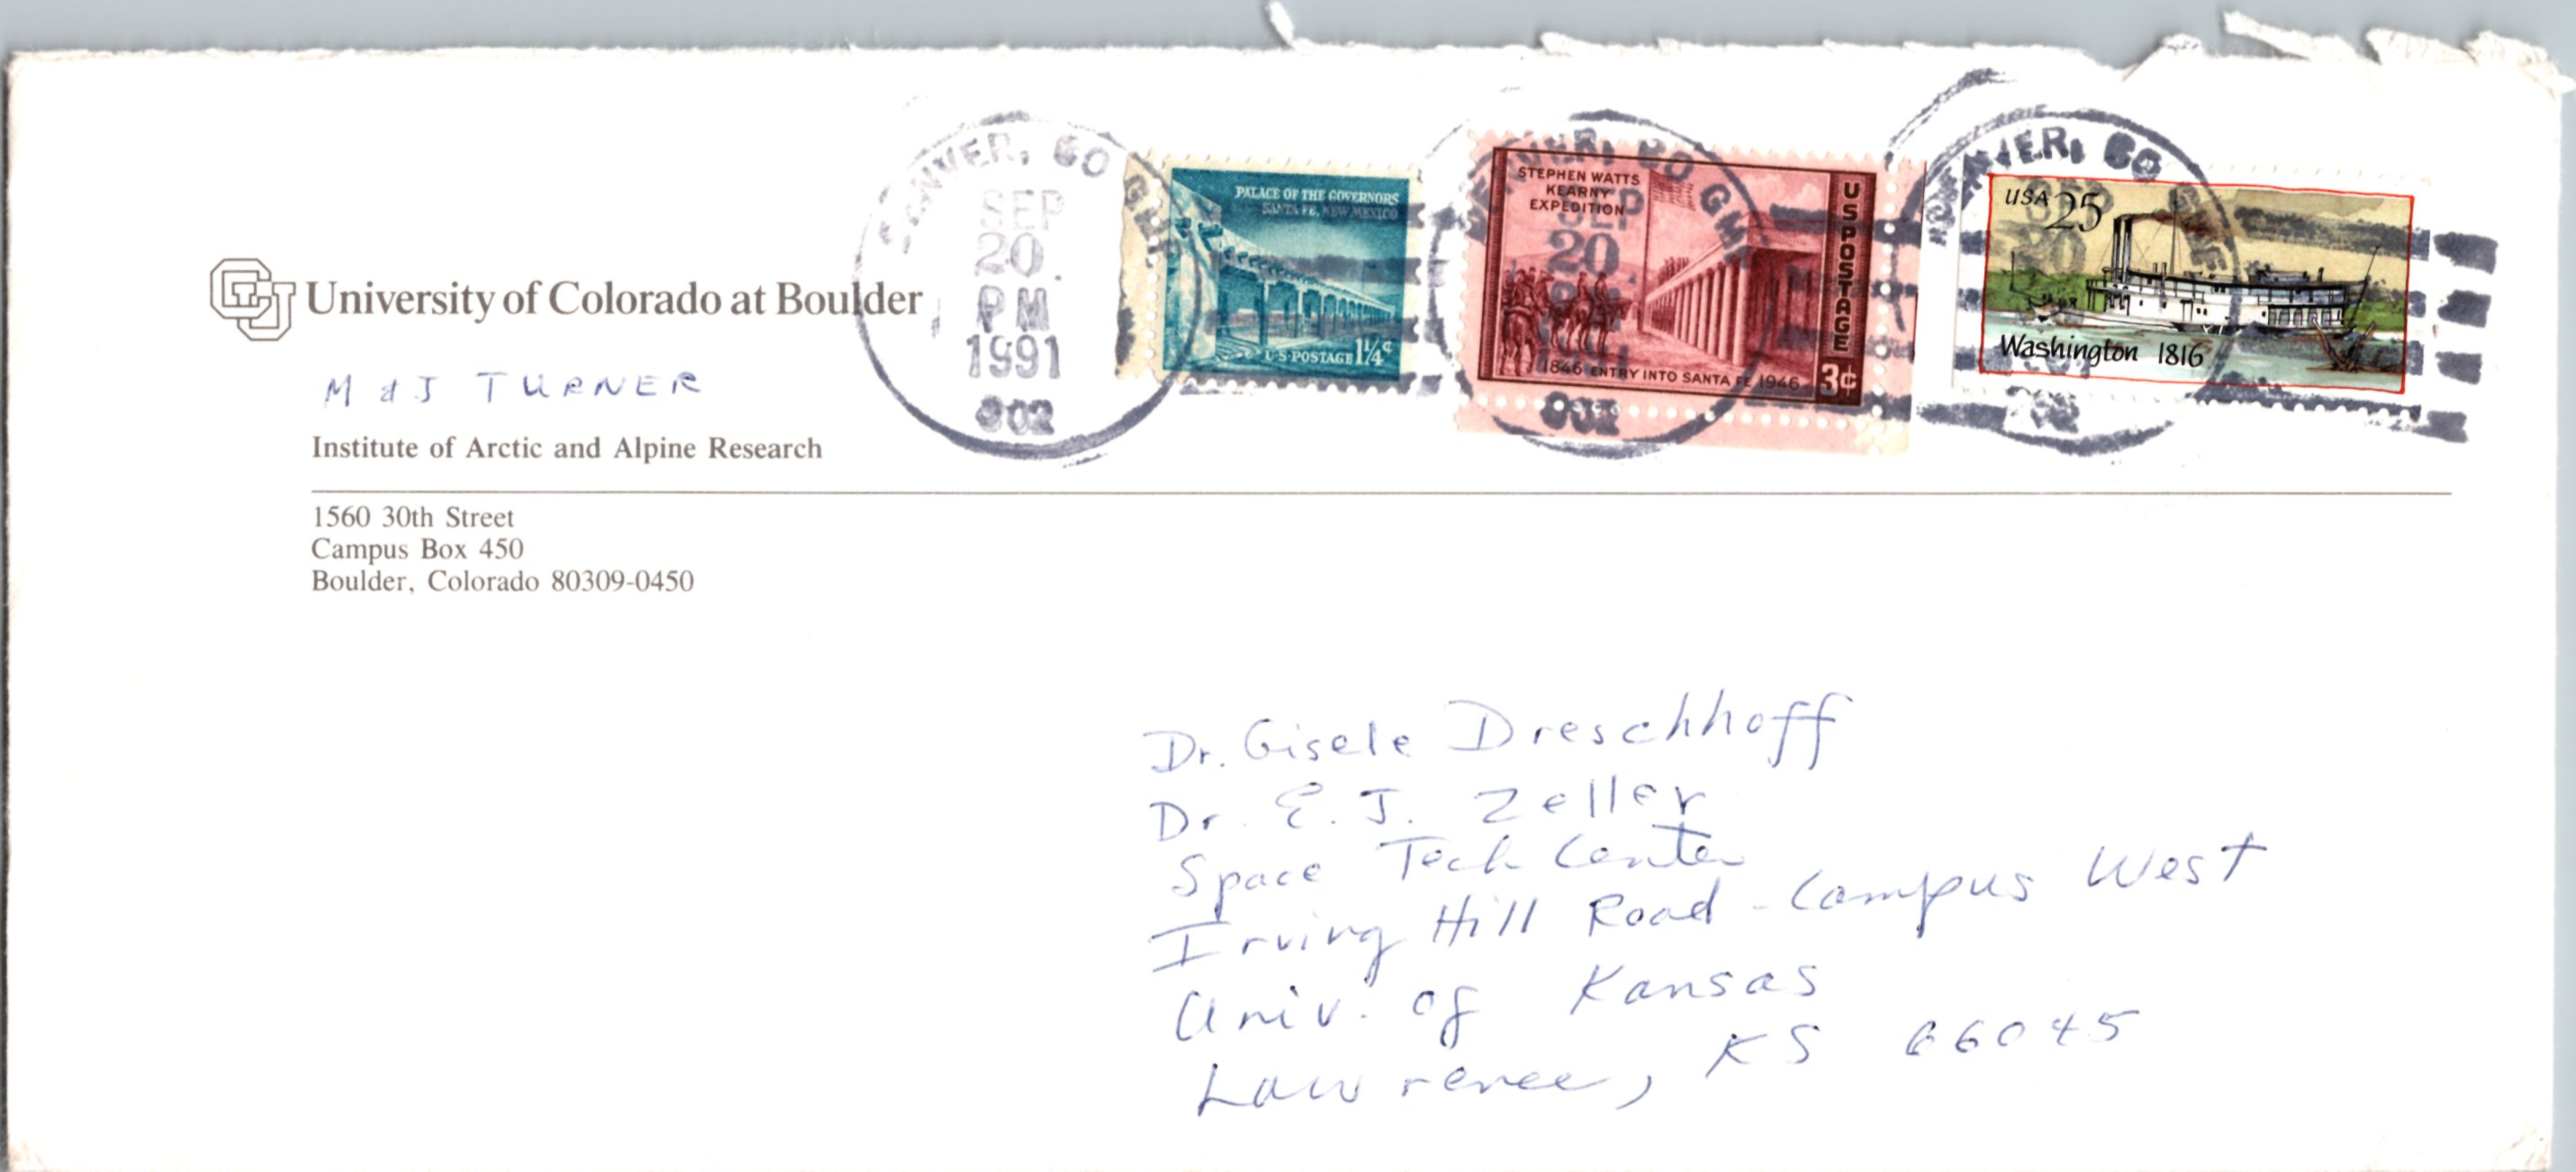 University of Colorado at Boulder
M & J TURNER
Institute of Arctic and Alpine Research
1560 30th Street
Campus Box 450
Boulder, Colorado 80309-0450
DENVER, CO GMF
SEP
20
PM
1991
802
PALACE OF THE GOVERNORS
SANTA FE, NEW MEXICO
U·S·POSTAGE 1¼¢
DENVER, CO GMF
SEP
20
PM
1991
802
STEPHEN WATTS
KEARNY
EXPEDITION
US POSTAGE
1846 ENTRY INTO SANTA FE 1946
3¢
DENVER, CO GMF
SEP
20
USA 25
Washington 1816
Dr. Gisele Dreschhoff
Dr. E. J. Zeller
Space Tech Center
Irving Hill Road - Campus West
Univ. of Kansas
Lawrence, KS 66045